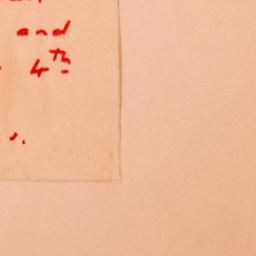 and
4th
s.